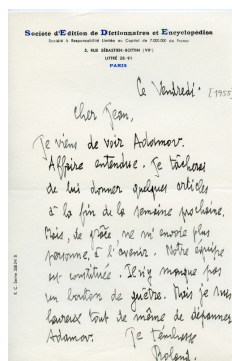 Société d'Edition de Dictionnaires et Encyclopédies
Société à Responsabilité Limitée au Capital de 7.000.000 de Francs
5, RUE SÉBASTIEN-BOTTIN (VIIe)
LITTRÉ 28-91
PARIS
Ce Vendredi.
[1955]
Cher Jean,
Je viens de voir Adamov.
Affaire entendue. Je tâcherai
de lui donner quelques articles
à la fin de la semaine prochaine.
Mais, de grâce ne m'envoie plus
personne, à l'avenir. Notre équipe
est constituée. Il n'y manque pas
un bouton de guêtre. Mais je suis
heureux tout de même de dépanner
Adamov.
Je t'embrasse
Roland.
R. C. Seine